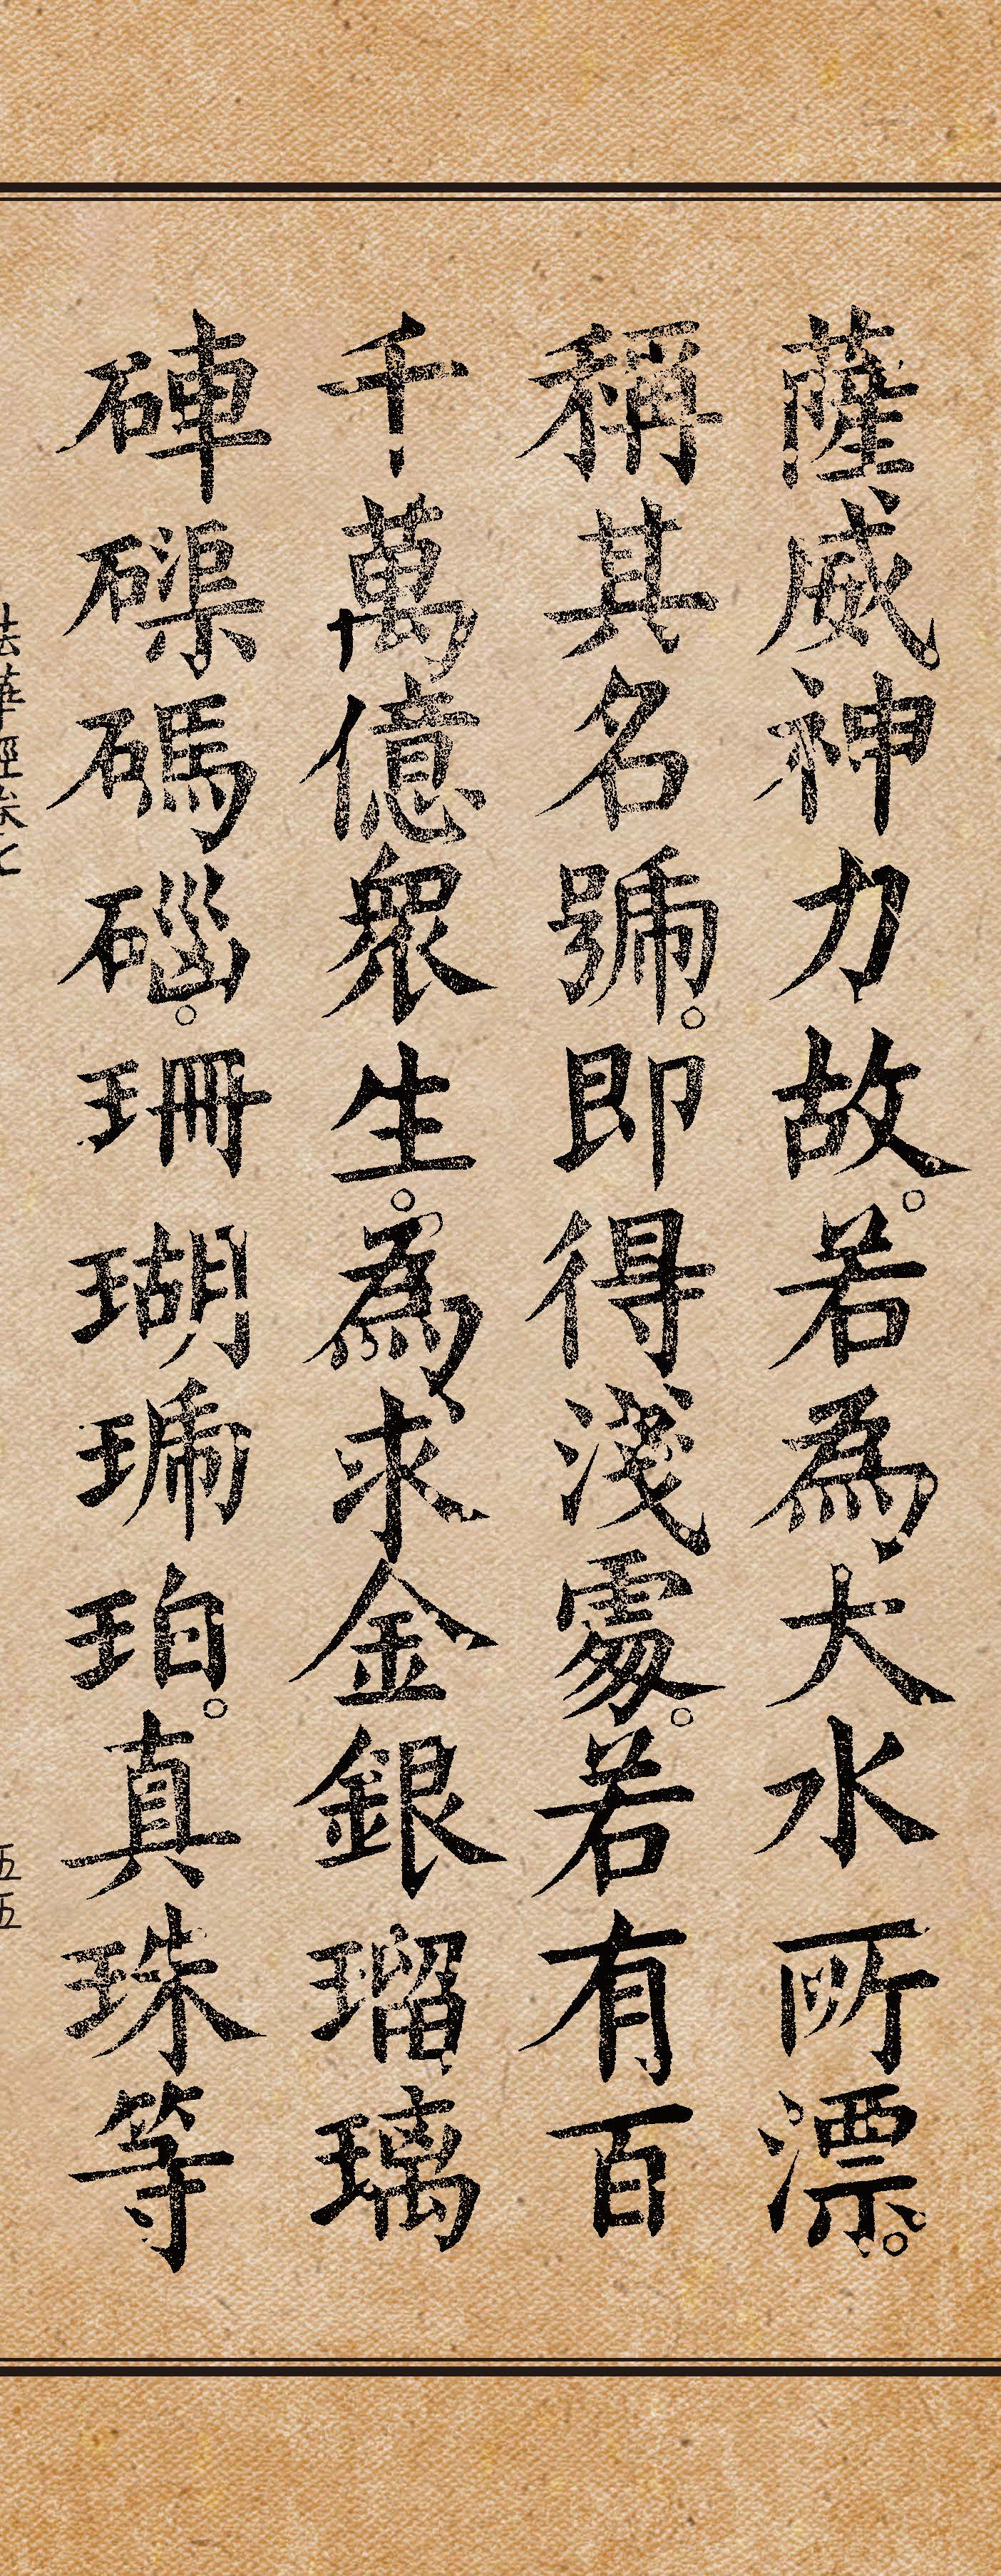 薩威神力故。若為大水所漂。
稱其名號。即得淺處。若有百
千萬億眾生。為求金銀瑠璃
硨磲碼碯。珊瑚琥珀。真珠等
法華經卷七
五五